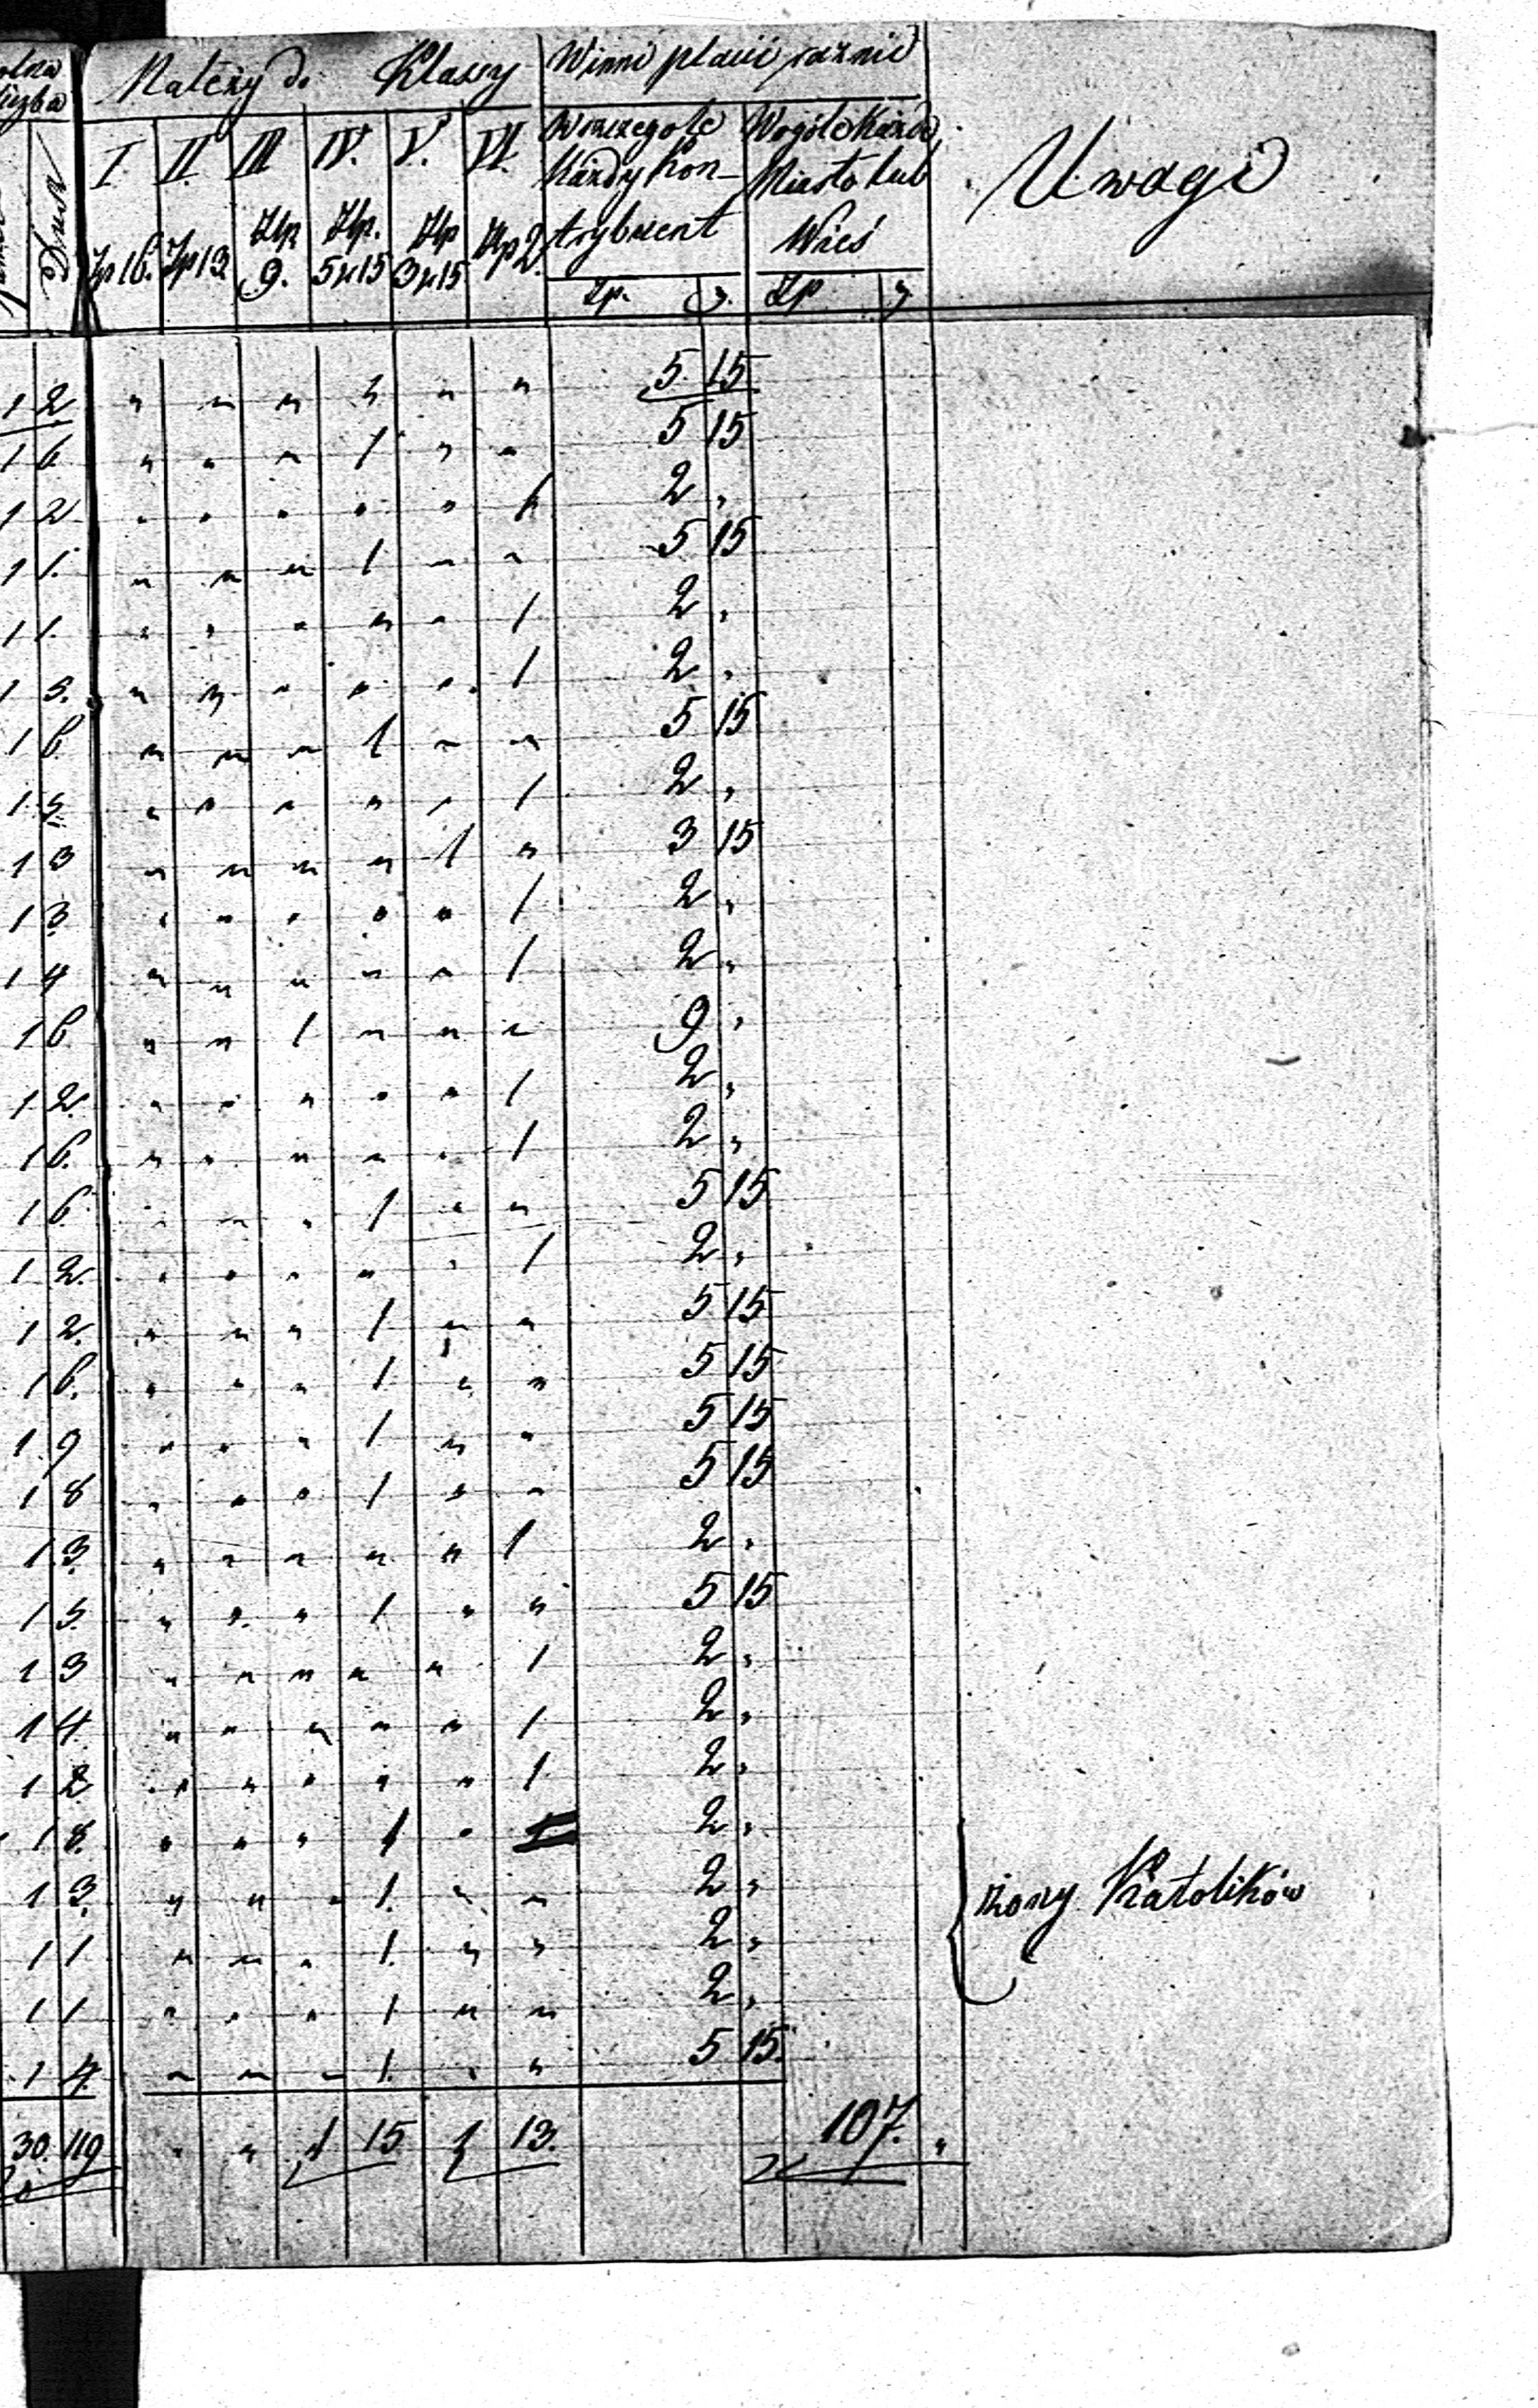 Należy do Klassy Winni płacić rocznie Uwagi
liczba
I. II. III IV. V. VI. Wszczegole Wogóle Każde
Każdy Kon- Miasto lub
trybuent Wieś
Dusz Zp 16. Zp 13 Złp 9. Złp. 5 gr 15 Złp 3 gr 15 Złp 2.
Zp. g. Zp g
1 2 " " " " " " 5 15
1 6 " " " 1 " " 5 15
1 2 " " " " " 1 2 "
1 1. " " " 1 " " 5 15
1 1. " " " " " 1 2 "
1 5. " " " " " 1 2 "
1 6. " " " 1 " " 5 15
1 5. " " " " " 1 2 "
1 3 " " " " 1 " 3 15
1 3 " " " " " 1 2 "
1 4 " " " " " 1 2 "
1 6 " " 1 " " " 9 "
1 2. " " " " " 1 2 "
1 6. " " " " " 1 2 "
1 6 " " " 1 " " 5 15
1 2 " " " " " 1 2 "
1 2. " " " 1 " " 5 15
1 6. " " " 1 " " 5 15
1 9 " " " 1 " " 5 15
1 8 " " " 1 " " 5 15
1 3 " " " " " 1 2 "
1 5. " " " 1 " " 5 15
1 3 " " " " " 1 2 "
1 4 " " " " " 1 2 "
1 2 " " " " " 1 2 "
1 8. " " " 1 " 2 "
1 3. " " " 1. " " 2 " żony Katolików
1 1 " " " 1. " " 2 "
1 1 " " " 1 " " 2 "
1 4 " " " 1. " " 5 15.
30. 119 " " 1 15 1 13. 107. "